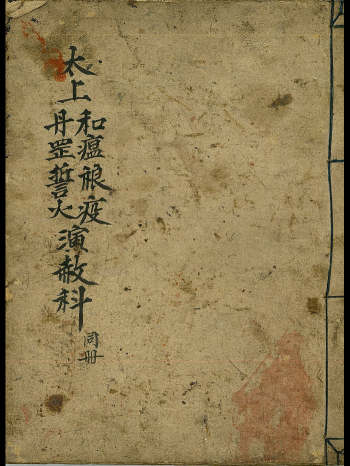 太上
和瘟禳疫
丹罡誓火
演赦科
同册